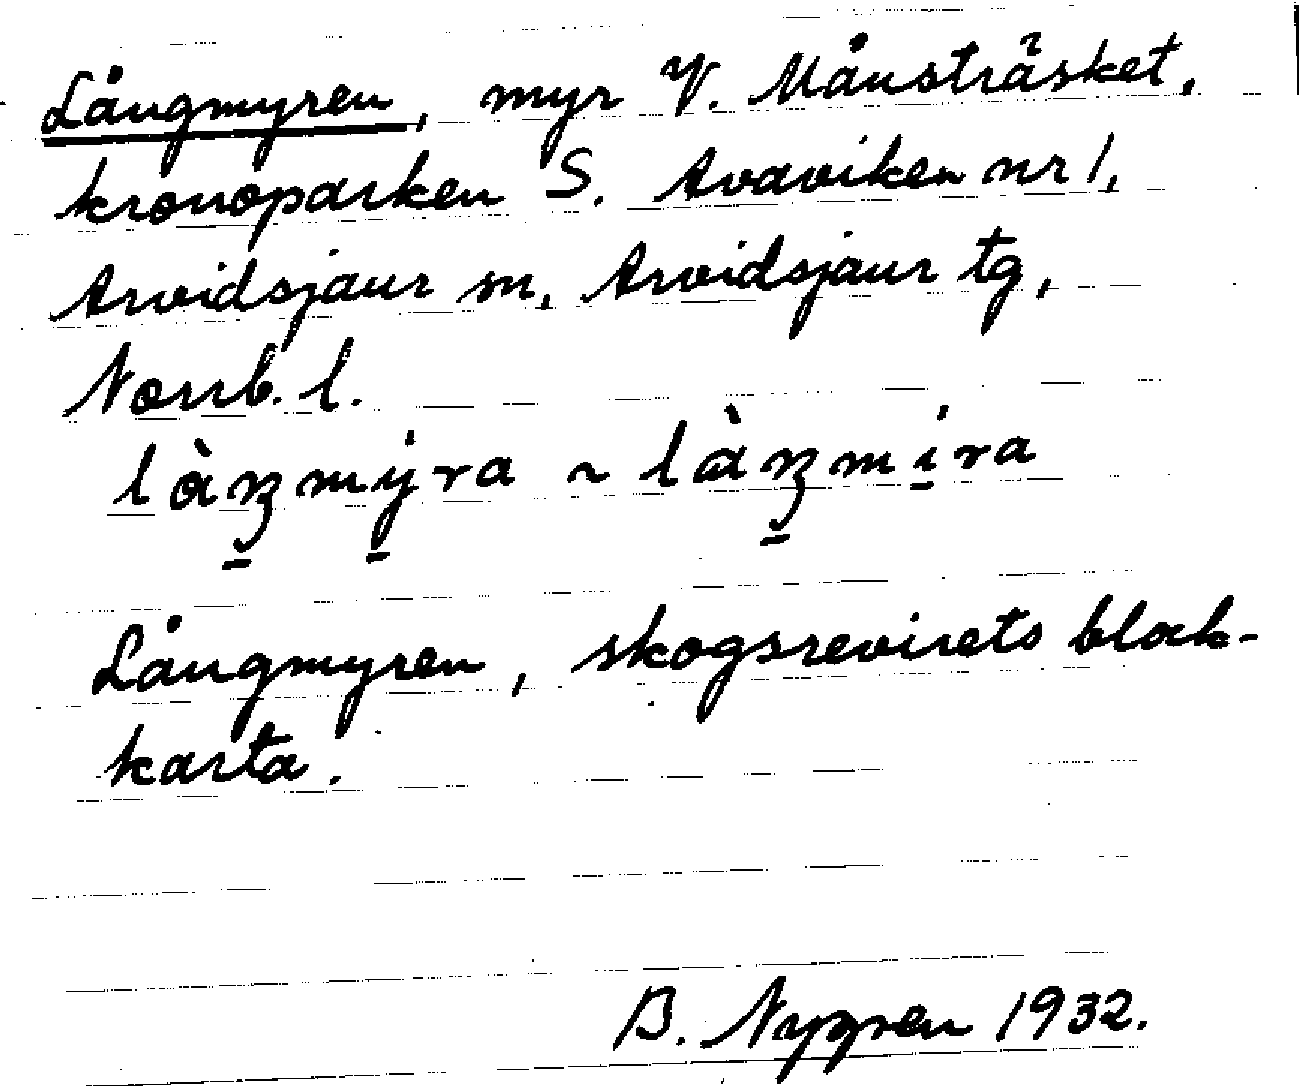 Långmyren, myr V. Månsträsket,
kronoparken S. Avaviken nr 1,
Arvidsjaur sn, Arvidsjaur tg,
Norrb. l.
làŋ̠mý̠ra ~ làŋ̠mí̠ra
Långmyren, skogsrevirets block-
karta.
B. Nygren 1932.